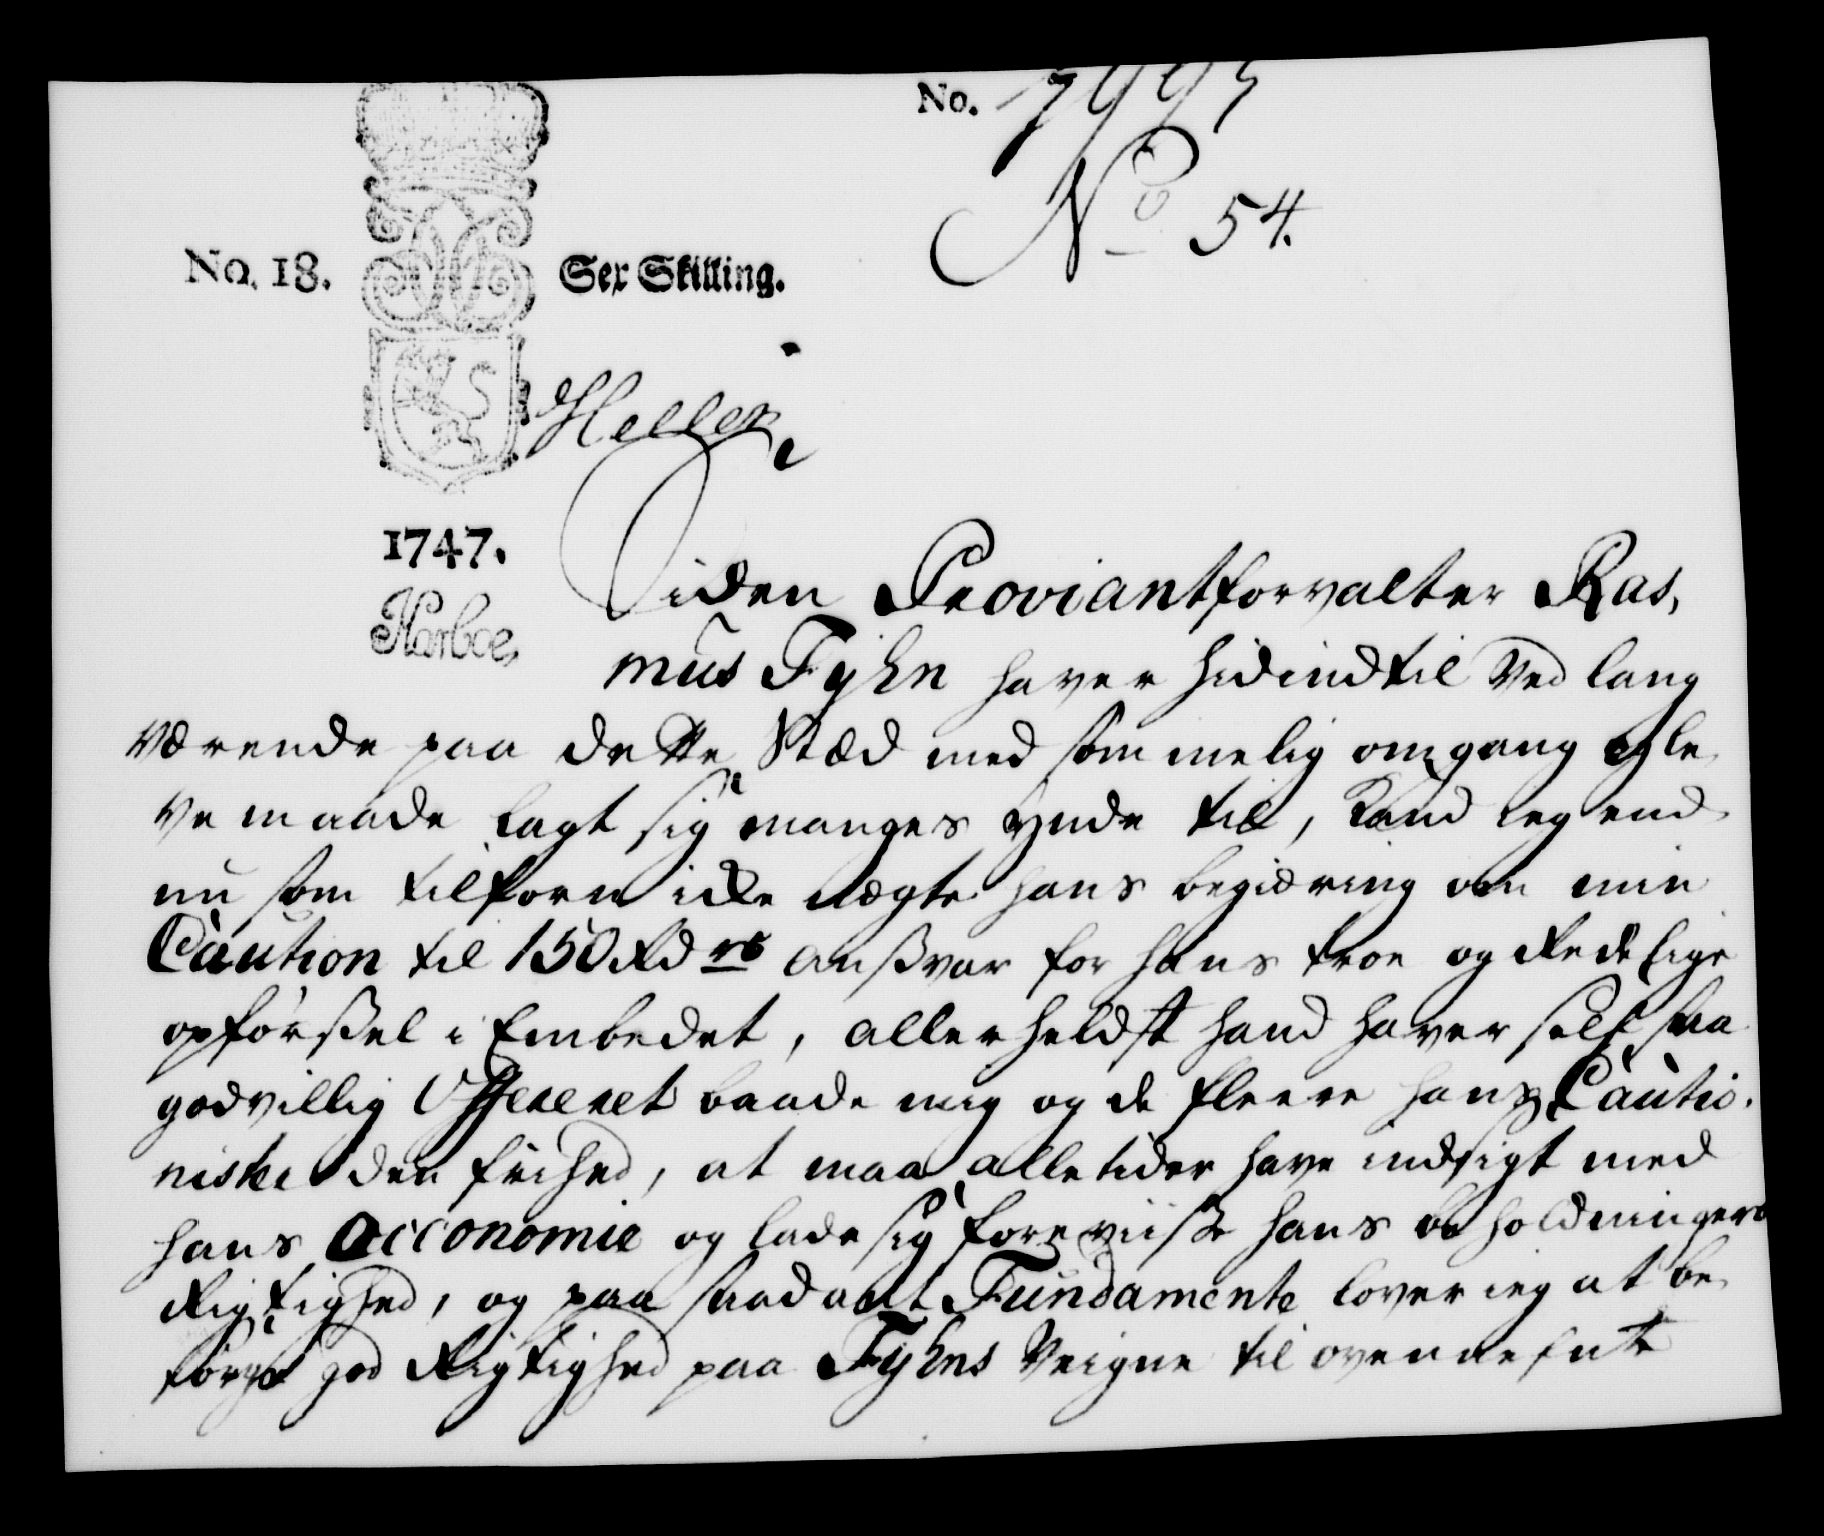 No. 7995
No 54.
No. 18.
Sex Skilling.
Heller
1747.
Harboe,
Siden Proviantforvalter Ras,
mus Fyhn haver hidindtil ved lang
værende paa dette Stæd med sømmelig omgang og le
ve maade lagt sig manges ynde til, kand ieg end
nu som tilforn icke nægte hans begiæring om min
Caution til 150 Rdrs ansvar for hans troe og Redelige
opførssel i Embedet, allerheldst hand haver self saa
godvillig Offereret baade mig og de fleere hans Cautio.
nister den frihed, at maa alletider have indsigt med
hans Oeconomie og lade sig foreviisse hans beholdningers
Rigtighed, og paa saadant Fundamente lover ieg at be
sørge god Rigtighed paa Fyhns Veigne til ovennefnte